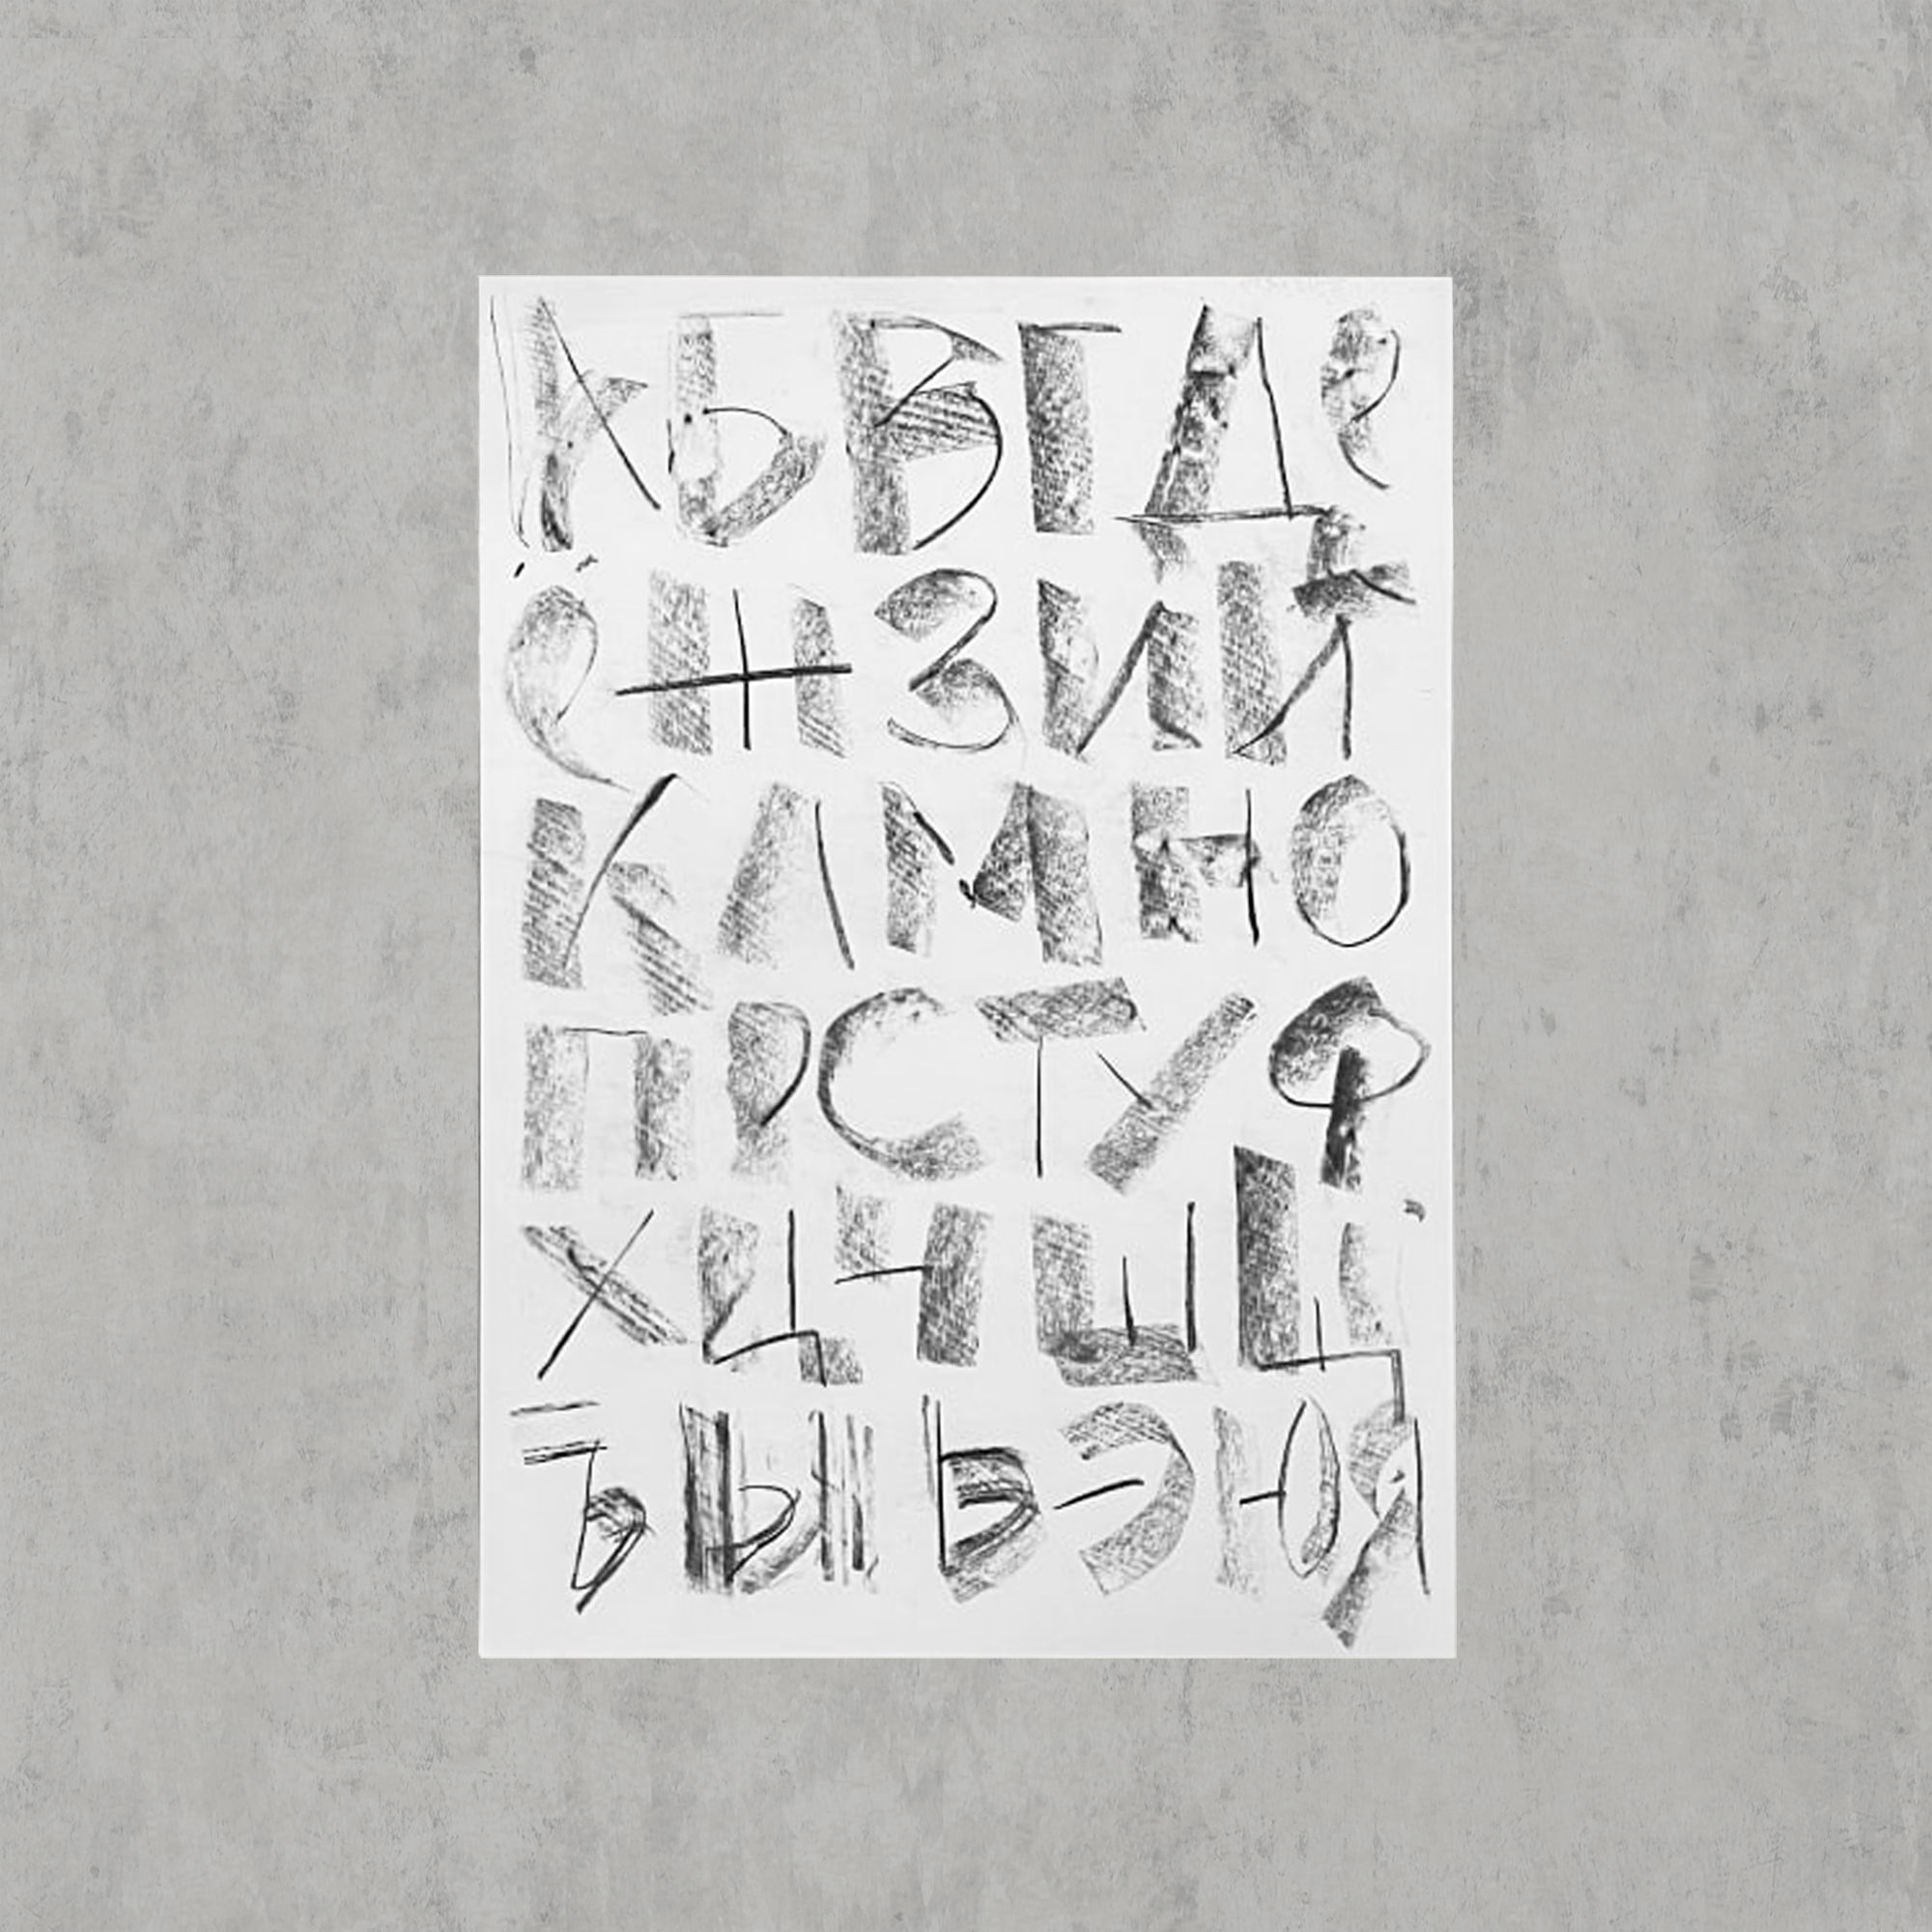 А Б В Г Д Е
Ё Ж З И Й
К Л М Н О
П Р С Т У Ф
Х Ц Ч Ш Щ
Ъ Ы Ь Э Ю Я